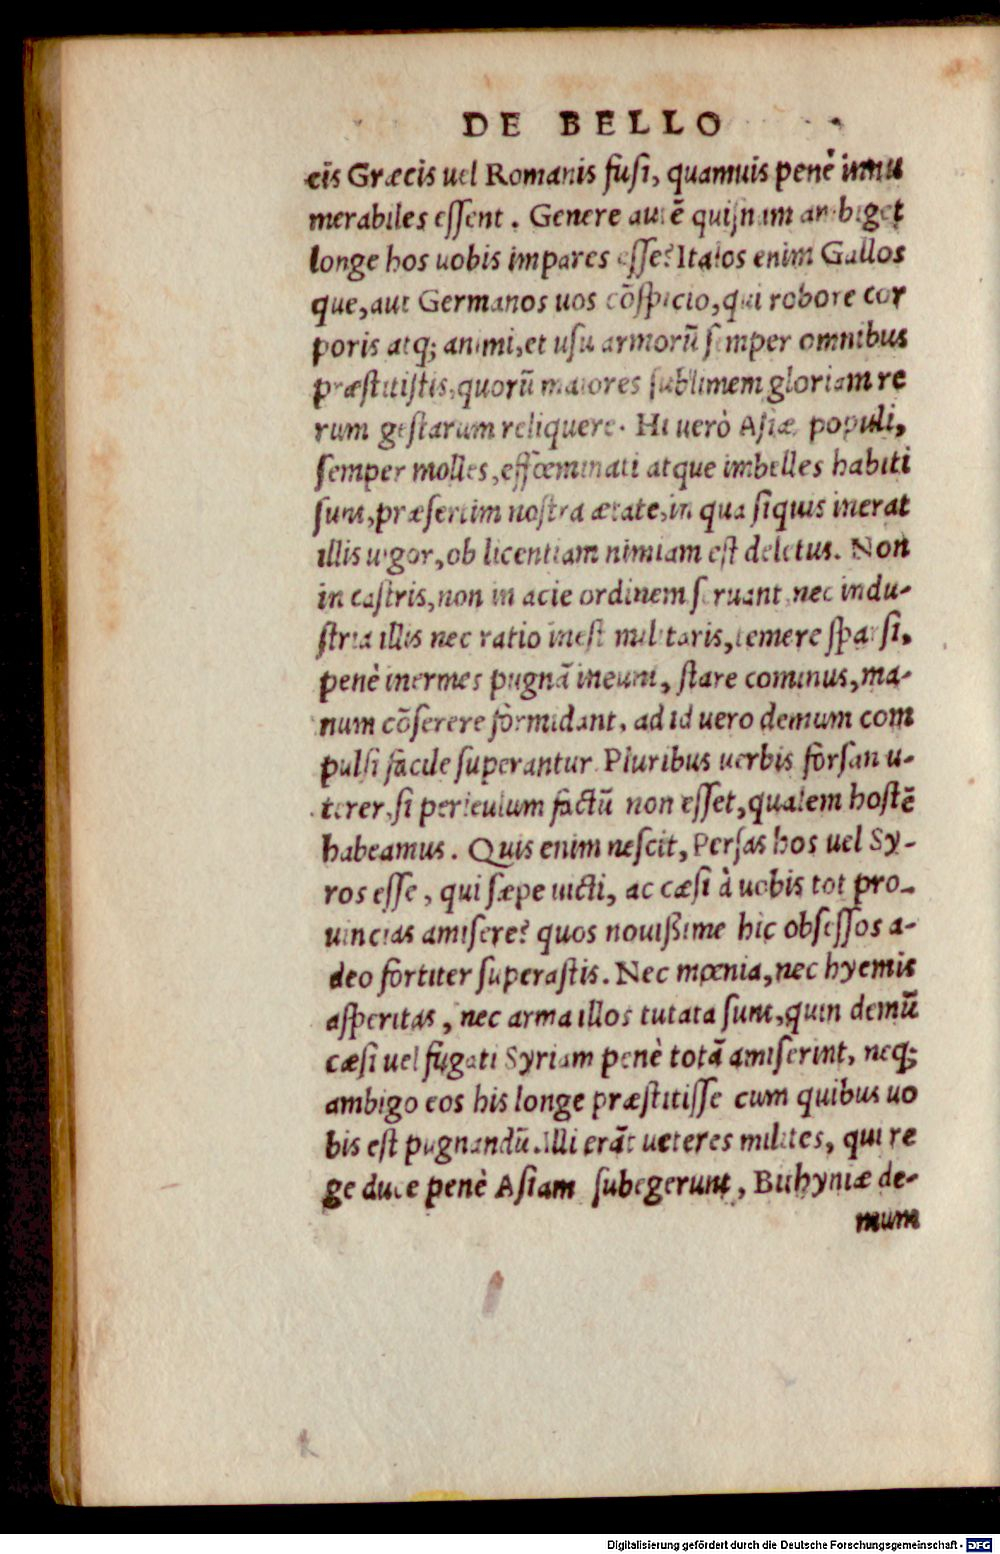 DE BELLO
cis Græcis uel Romanis fusi, quamuis penè innu
merabiles essent. Genere autē quisnam ambiget
longe hos uobis impares esse? Italos enim Gallos
que, aut Germanos uos cōspicio, qui robore cor
poris atq; animi, et usu armorū semper omnibus
præstitistis, quorū maiores sublimem gloriam re
rum gestarum reliquere. Hi uerò Asiæ populi,
semper molles, effœminati atque imbelles habiti
sunt, præsertim nostra ætate, in qua siquis inerat
illis uigor, ob licentiam nimiam est deletus. Non
in castris, non in acie ordinem seruant, nec indu-
stria illis nec ratio inest militaris, temere sparsi,
penè inermes pugnā ineunt, stare cominus, ma-
num cōserere formidant, ad id uero demum com
pulsi facile superantur. Pluribus uerbis forsan u-
terer, si periculum factū non esset, qualem hostē
habeamus. Quis enim nescit, Persas hos uel Sy-
ros esse, qui sæpe uicti, ac cæsi à uobis tot pro-
uincias amisere? quos nouißime hic obsessos a-
deo fortiter superastis. Nec mœnia, nec hyemis
asperitas, nec arma illos tutata sunt, quin demū
cæsi uel fugati Syriam penè totā amiserint, neq;
ambigo eos his longe præstitisse cum quibus uo
bis est pugnandū. Illi erāt ueteres milites, qui re
ge duce penè Asiam subegerunt, Bithyniæ de-
mum
Digitalisierung gefördert durch die Deutsche Forschungsgemeinschaft - DFG